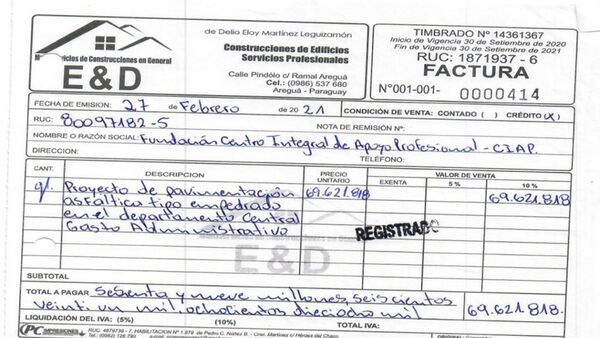 de Delio Eloy Martínez Leguizamón
Servicios de Construcciones en General
E&D
Construcciones de Edificios
Servicios Profesionales
Calle Pindólo c/ Ramal Areguá
Cel.: (0986) 537 680
Areguá - Paraguay
TIMBRADO Nº 14361367
Inicio de Vigencia 30 de Setiembre de 2020
Fin de Vigencia 30 de Setiembre de 2021
RUC: 1871937 - 6
FACTURA
Nº001-001- 0000414
FECHA DE EMISION: 27 de Febrero de 2021 CONDICIÓN DE VENTA: CONTADO ( ) CRÉDITO (X)
RUC: 80097182-5 NOTA DE REMISIÓN:
NOMBRE O RAZÓN SOCIAL: Fundación Centro Integral de Apoyo Profesional - C.I.A.P.
DIRECCION: TELÉFONO:
CANT. DESCRIPCION PRECIO UNITARIO VALOR DE VENTA
EXENTA 5 % 10 %
Proyecto de pavimentación 69.621.818 69.621.818
asfaltica tipo empedrado
en el departamento Central
Gasto Administrativo
REGISTRADO
E&D
SUBTOTAL
TOTAL A PAGAR sesenta y nueve millones, seis cientos
veinti un mil, ochocientos dieciocho mil 69.621.818.
LIQUIDACIÓN DEL IVA: (5%) (10%) TOTAL IVA: